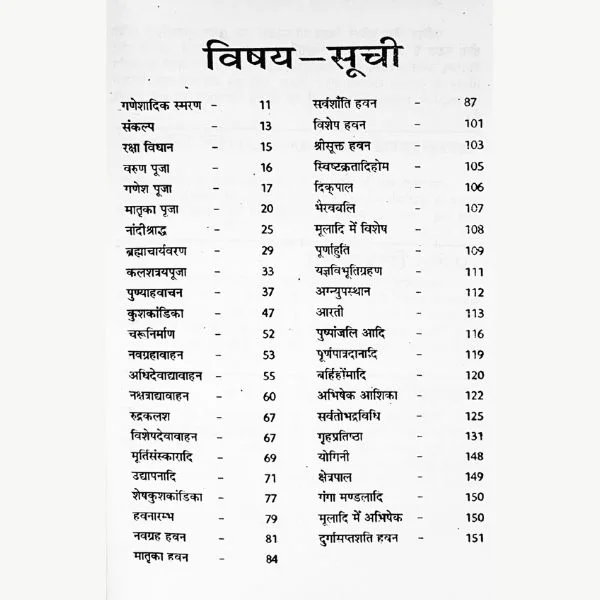 विषय – सूची
गणेशादिक स्मरण – 11
संकल्प – 13
रक्षा विधान – 15
वरुण पूजा – 16
गणेश पूजा – 17
मातृका पूजा – 20
नांदीश्राद्ध – 25
ब्रह्माचार्यवरण – 29
कलशत्रयपूजा – 33
पुण्याहवाचन – 37
कुशकांडिका – 47
चरूनिर्माण – 52
नवग्रहावाहन – 53
अधिदेवाद्यावाहन – 55
नक्षत्राद्यावाहन – 60
रुद्रकलश – 67
विशेषदेवावाहन – 67
मूर्तिसंस्कारादि – 69
उद्यापनादि – 71
शेषकुशकांडिका – 77
हवनारम्भ – 79
नवग्रह हवन – 81
मातृका हवन – 84
सर्वशाँति हवन – 87
विशेष हवन – 101
श्रीसूक्त हवन – 103
स्विष्टक्रतादिहोम – 105
दिक्पाल – 106
भैरवबलि – 107
मूलादि में विशेष – 108
पूर्णाहुति – 109
यज्ञविभूतिग्रहण – 111
अग्न्युपस्थान – 112
आरती – 113
पुष्पांजलि आदि – 116
पूर्णपात्रदानादि – 119
बर्हिहोमादि – 120
अभिषेक आशिका – 122
सर्वतोभद्रविधि – 125
गृहप्रतिष्ठा – 131
योगिनी – 148
क्षेत्रपाल – 149
गंगा मण्डलादि – 150
मूलादि में अभिषेक – 150
दुर्गासप्तशति हवन – 151